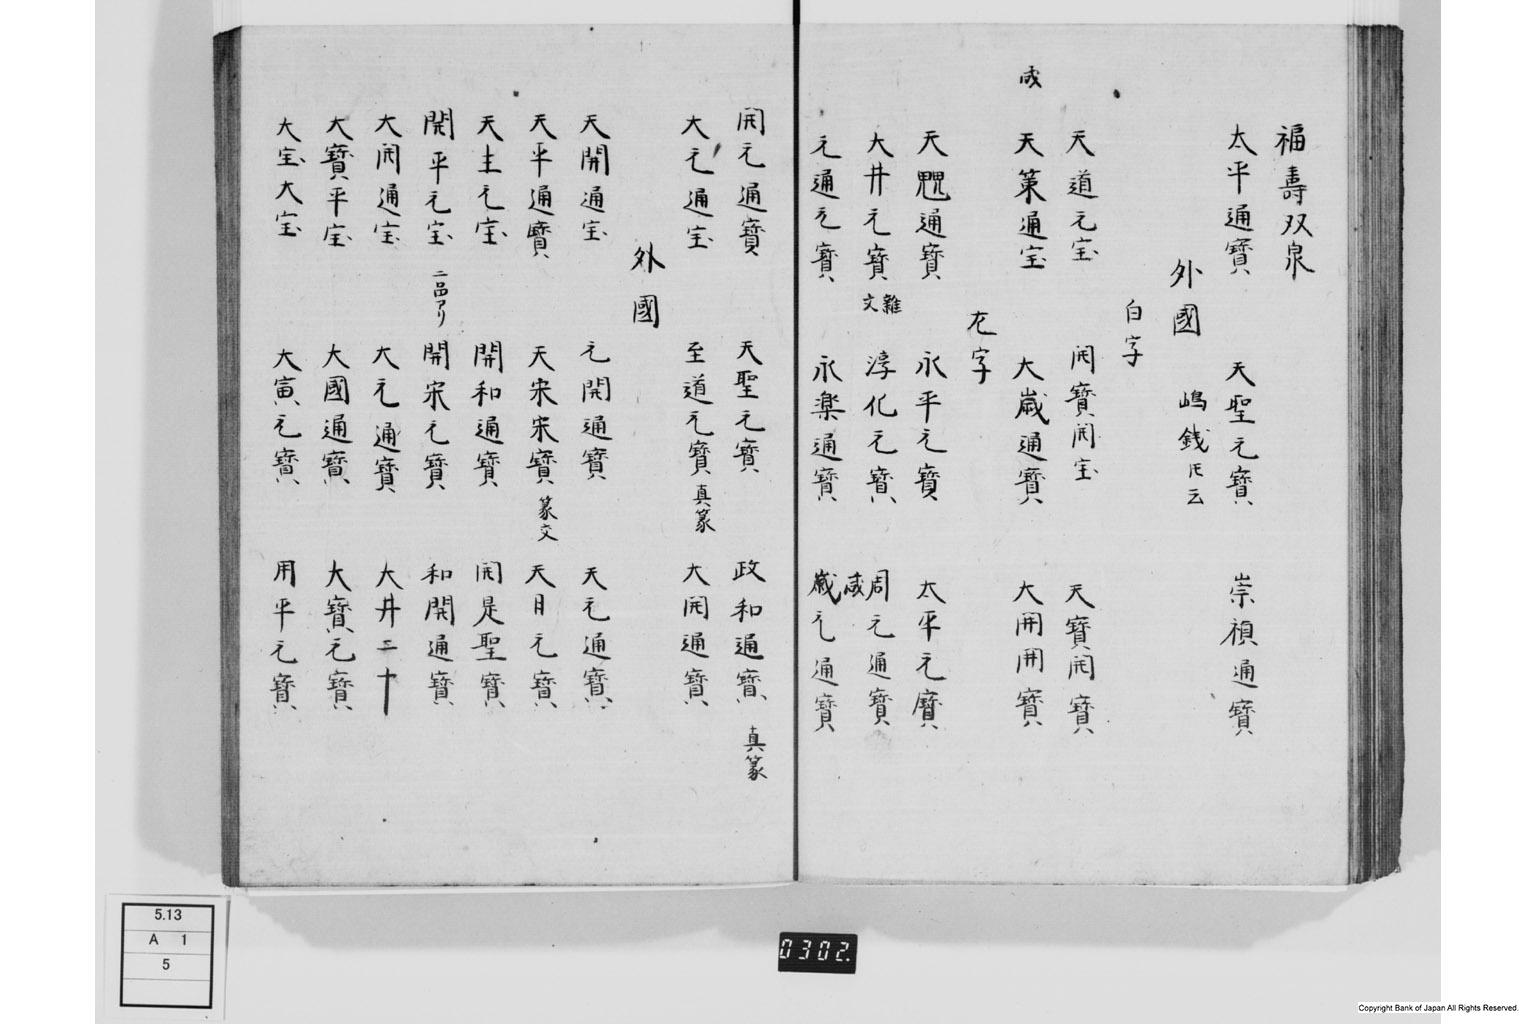 福壽双泉
太平通寳 天聖元寳 崇禎通寳
外國 嶋銭氏云
白字
天道元宝 開寳開宝 天寳開寳
咸
天策通宝 大歳通寳 大開開寳
左字
天䰟通寳 永平元寳 太平元寳
大井元寳 雜文 淳化元寳 周元通寳
元通元寳 永楽通寳 咸歳元通寳
開元通寳 天聖元寳 政和通寳 真篆
大元通宝 至道元寳 真篆 大開通寳
外國
天開通宝 元開通寳 天元通寳
天平通寳 天宋宋寳 篆文 天月元寳
天主元宝 開和通寳 開是聖寳
開平元宝 二品アリ 開宋元寳 和開通寳
大開通宝 大元通寳 大井二十
大寳平宝 大國通寳 大寳元寳
大宝大宝 大寅元寳 用平元寳
5.13
A 1
5
0302.
Copyright Bank of Japan All Rights Reserved.